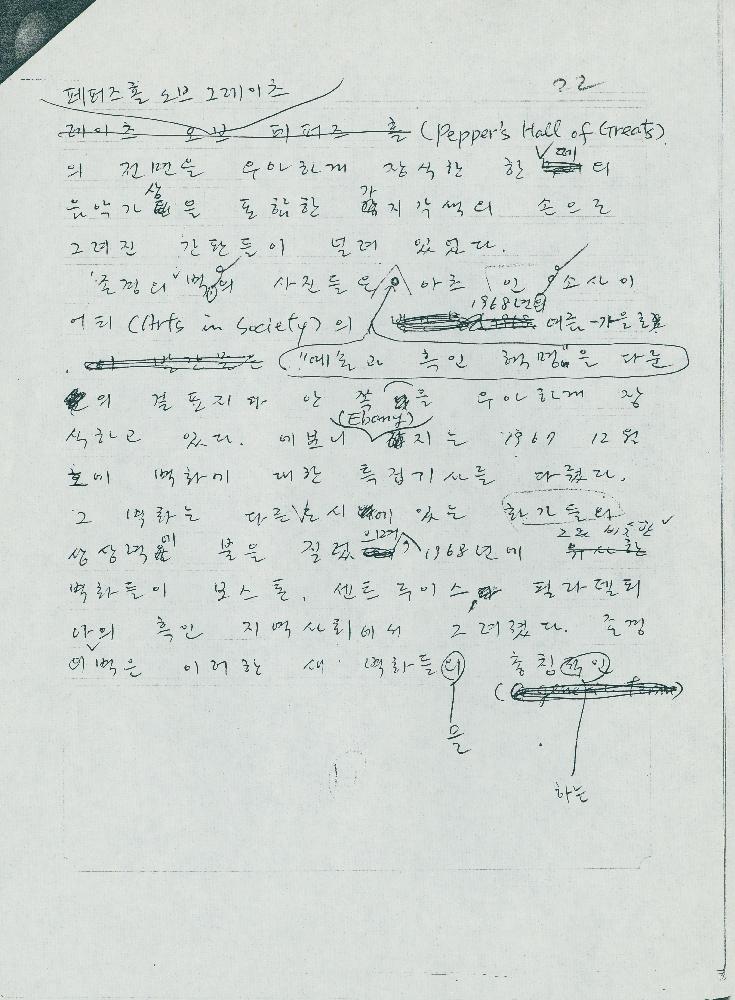 22
페퍼즈 홀 오브 그레이츠
레이츠 오브 페퍼즈 홀 (Pepper's Hall of Greats)
의 전면을 우아하게 장식한 한 떼의
음악가상을 포함한 각지각색의 손으로
그려진 간판들이 널려 있었다.
'존경의' 벽의 사진들은 아츠 인 소사이
어티 (Arts in Society)의 1968년의 여름-가을호
"예술과 흑인 혁명"을 다룬
의 겉표지와 안쪽을 우아하게 장
식하고 있다. 에보니 (Ebony)지는 1967 12월
호에 벽화에 대한 특집기사를 다뤘다.
그 벽화는 다른 도시에 있는 화가들의
상상력에 불을 질렀으며 1968년에 그와 비슷한
벽화들이 보스톤, 센트루이스, 필라델피
아의 흑인 지역사회에서 그려졌다. 존경
의 벽은 이러한 새 벽화들의 총칭적인
을
하는